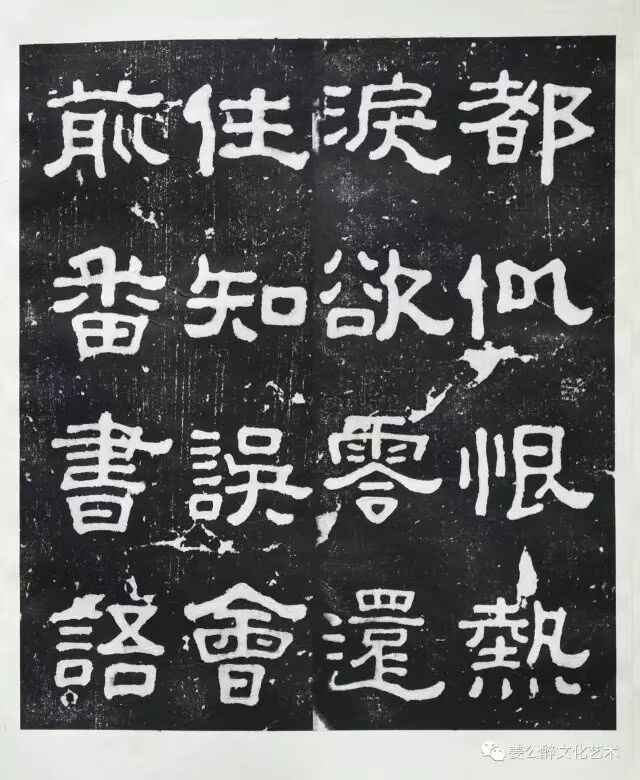 都似恨熱
淚欲零還
住知誤會
前番書語
姜公醉文化艺术